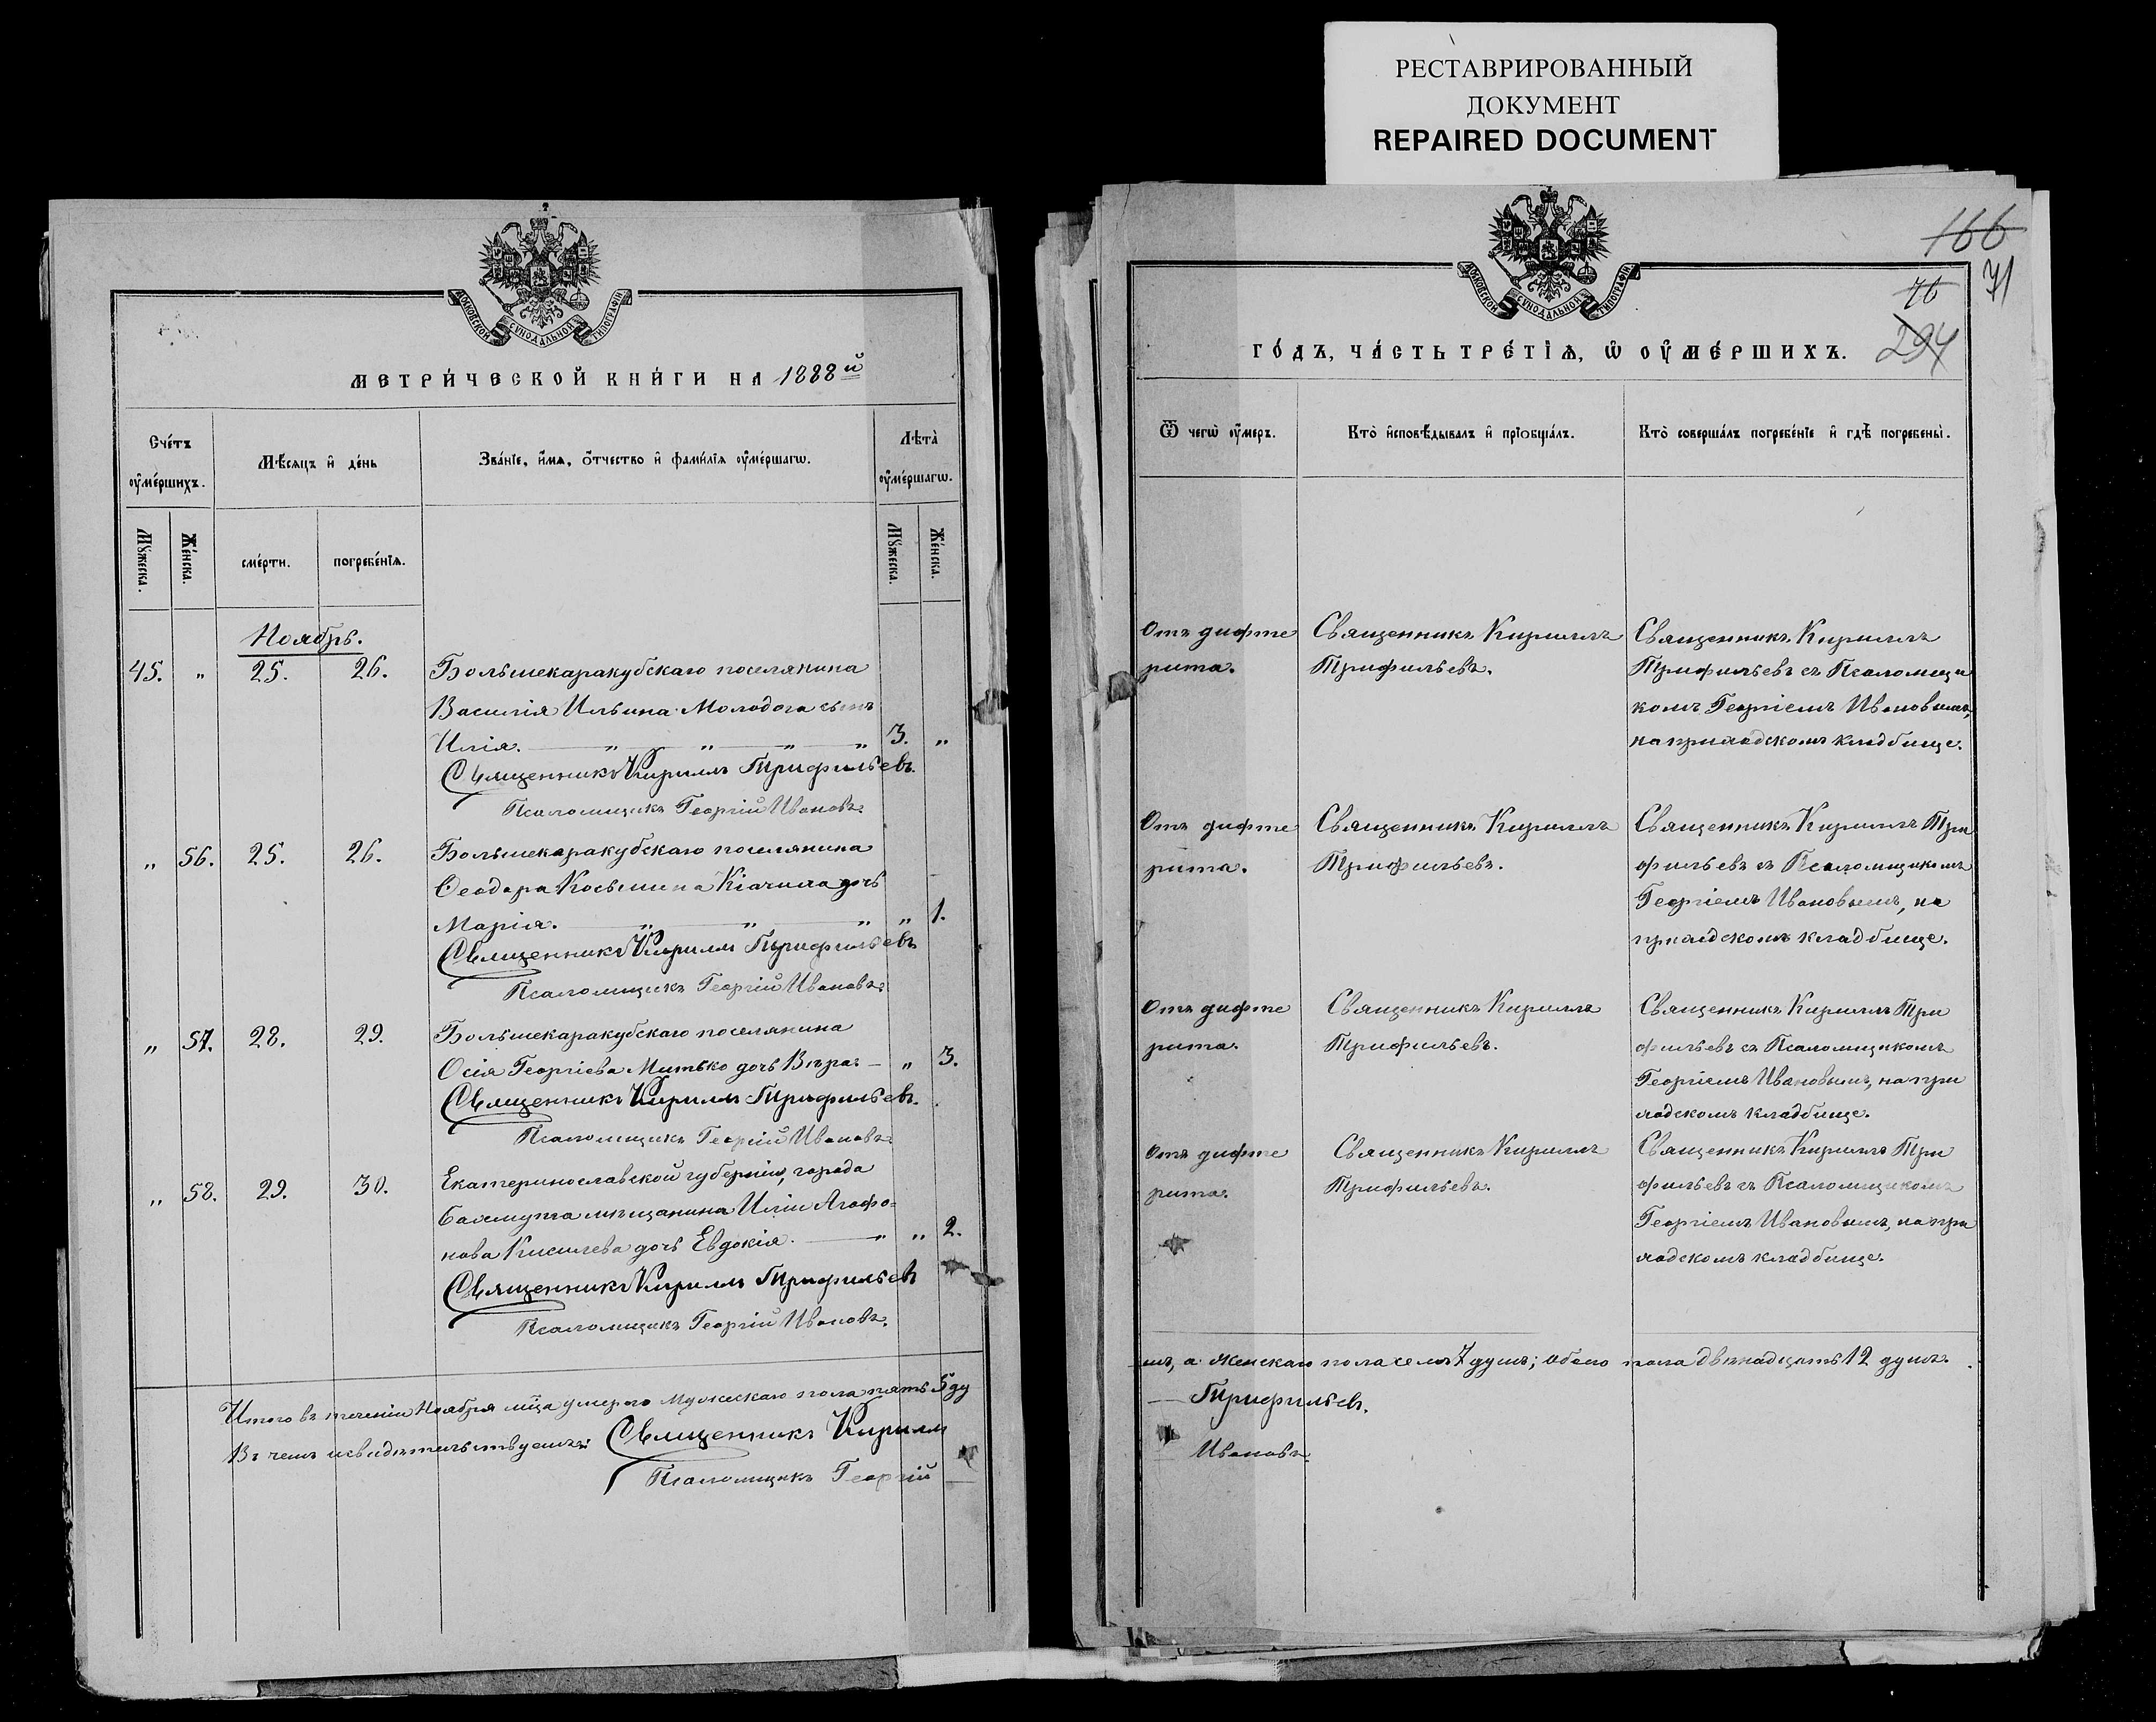 РЕСТАВРИРОВАННЫЙ
ДОКУМЕНТ
REPAIRED DOCUMENT
МОСКОВСКОЙ СУНОДАЛЬНОЙ ТИПОГРАФІИ
МЕТРИ́ЧЕСКОЙ КНИ́ГИ НА 1888й
Сче́тъ ᲂу҆ме́ршихъ.
Мѣ́сяцъ и҆ де́нь
Зва́нїе, и҆́мѧ, ѻ҆́тчество и҆ фами́лїѧ ᲂу҆ме́ршагѡ.
Лѣта̀ ᲂу҆ме́ршагѡ.
Мꙋ́жеска.
Же́нска.
сме́рти.
погребе́нїѧ.
Мꙋ́жеска.
Же́нска.
Ноябрь.
45. „ 25. 26. Большекаракубскаго поселянина
Василія Ильина Молодога сынъ
Илія. — „ — „ — „ — „ 3. „
Священникъ Кириллъ Трифильевъ.
Псаломщикъ Георгій Ивановъ.
„ 56. 25. 26. Большекаракубскаго поселянина
Ѳеодора Косьмина Кіачила дочь
Марія. — „ — „ — „ „ 1.
Священникъ Кириллъ Трифильевъ
Псаломщикъ Георгій Ивановъ.
„ 57. 28. 29. Большекаракубскаго поселянина
Осія Георгіева Митько дочь Вѣра. — „ 3.
Священникъ Кириллъ Трифильевъ.
Псаломщикъ Георгій Ивановъ.
„ 58. 29. 30. Екатеринославской губерніи, города
Бахмута мѣщанина Иліи Агафо=
нова Киселева дочь Евдокія. — „ „ 2.
Священникъ Кириллъ Трифильевъ
Псаломщикъ Георгій Ивановъ.
Итого въ теченіи Ноября мца умерло мужескаго пола пять 5 ду
Въ чемъ и свидѣтельствуемъ: Священникъ Кириллъ
Псаломщикъ Георгій
166
71
76
294
МОСКОВСКОЙ СУНОДАЛЬНОЙ ТИПОГРАФІИ
ГО́ДЪ, ЧА́СТЬ ТРЕ́ТЇѦ, Ѡ҆ ᲂУ҆МЕ́РШИХЪ.
Ѿ чегѡ̀ ᲂу҆́меръ.
Кто̀ и҆сповѣ́дывалъ и҆ прїѻбща́лъ.
Кто̀ соверша́лъ погребе́нїе и҆ гдѣ̀ погребены̀.
Отъ дифте Священникъ Кириллъ Священникъ Кириллъ
рита. Трифильевъ. Трифильевъ съ Псаломщи
комъ Георгіемъ Ивановымъ,
на приходскомъ кладбище.
Отъ дифте Священникъ Кириллъ Священникъ Кириллъ Три
рита. Трифильевъ. фильевъ съ Псаломщикомъ
Георгіемъ Ивановымъ, на
приходскомъ кладбище.
Отъ дифте Священникъ Кириллъ Священникъ Кириллъ Три
рита. Трифильевъ. фильевъ съ Псаломщикомъ
Георгіемъ Ивановымъ, на при
ходскомъ кладбище.
Отъ дифте Священникъ Кириллъ Священникъ Кириллъ Три
рита. Трифильевъ. фильевъ съ Псаломщикомъ
Георгіемъ Ивановымъ, на при
ходскомъ кладбище.
шъ, а женскаго пола семь 7 душъ; обоего пола двѣнадцать 12 душъ.
Трифильевъ.
Ивановъ.